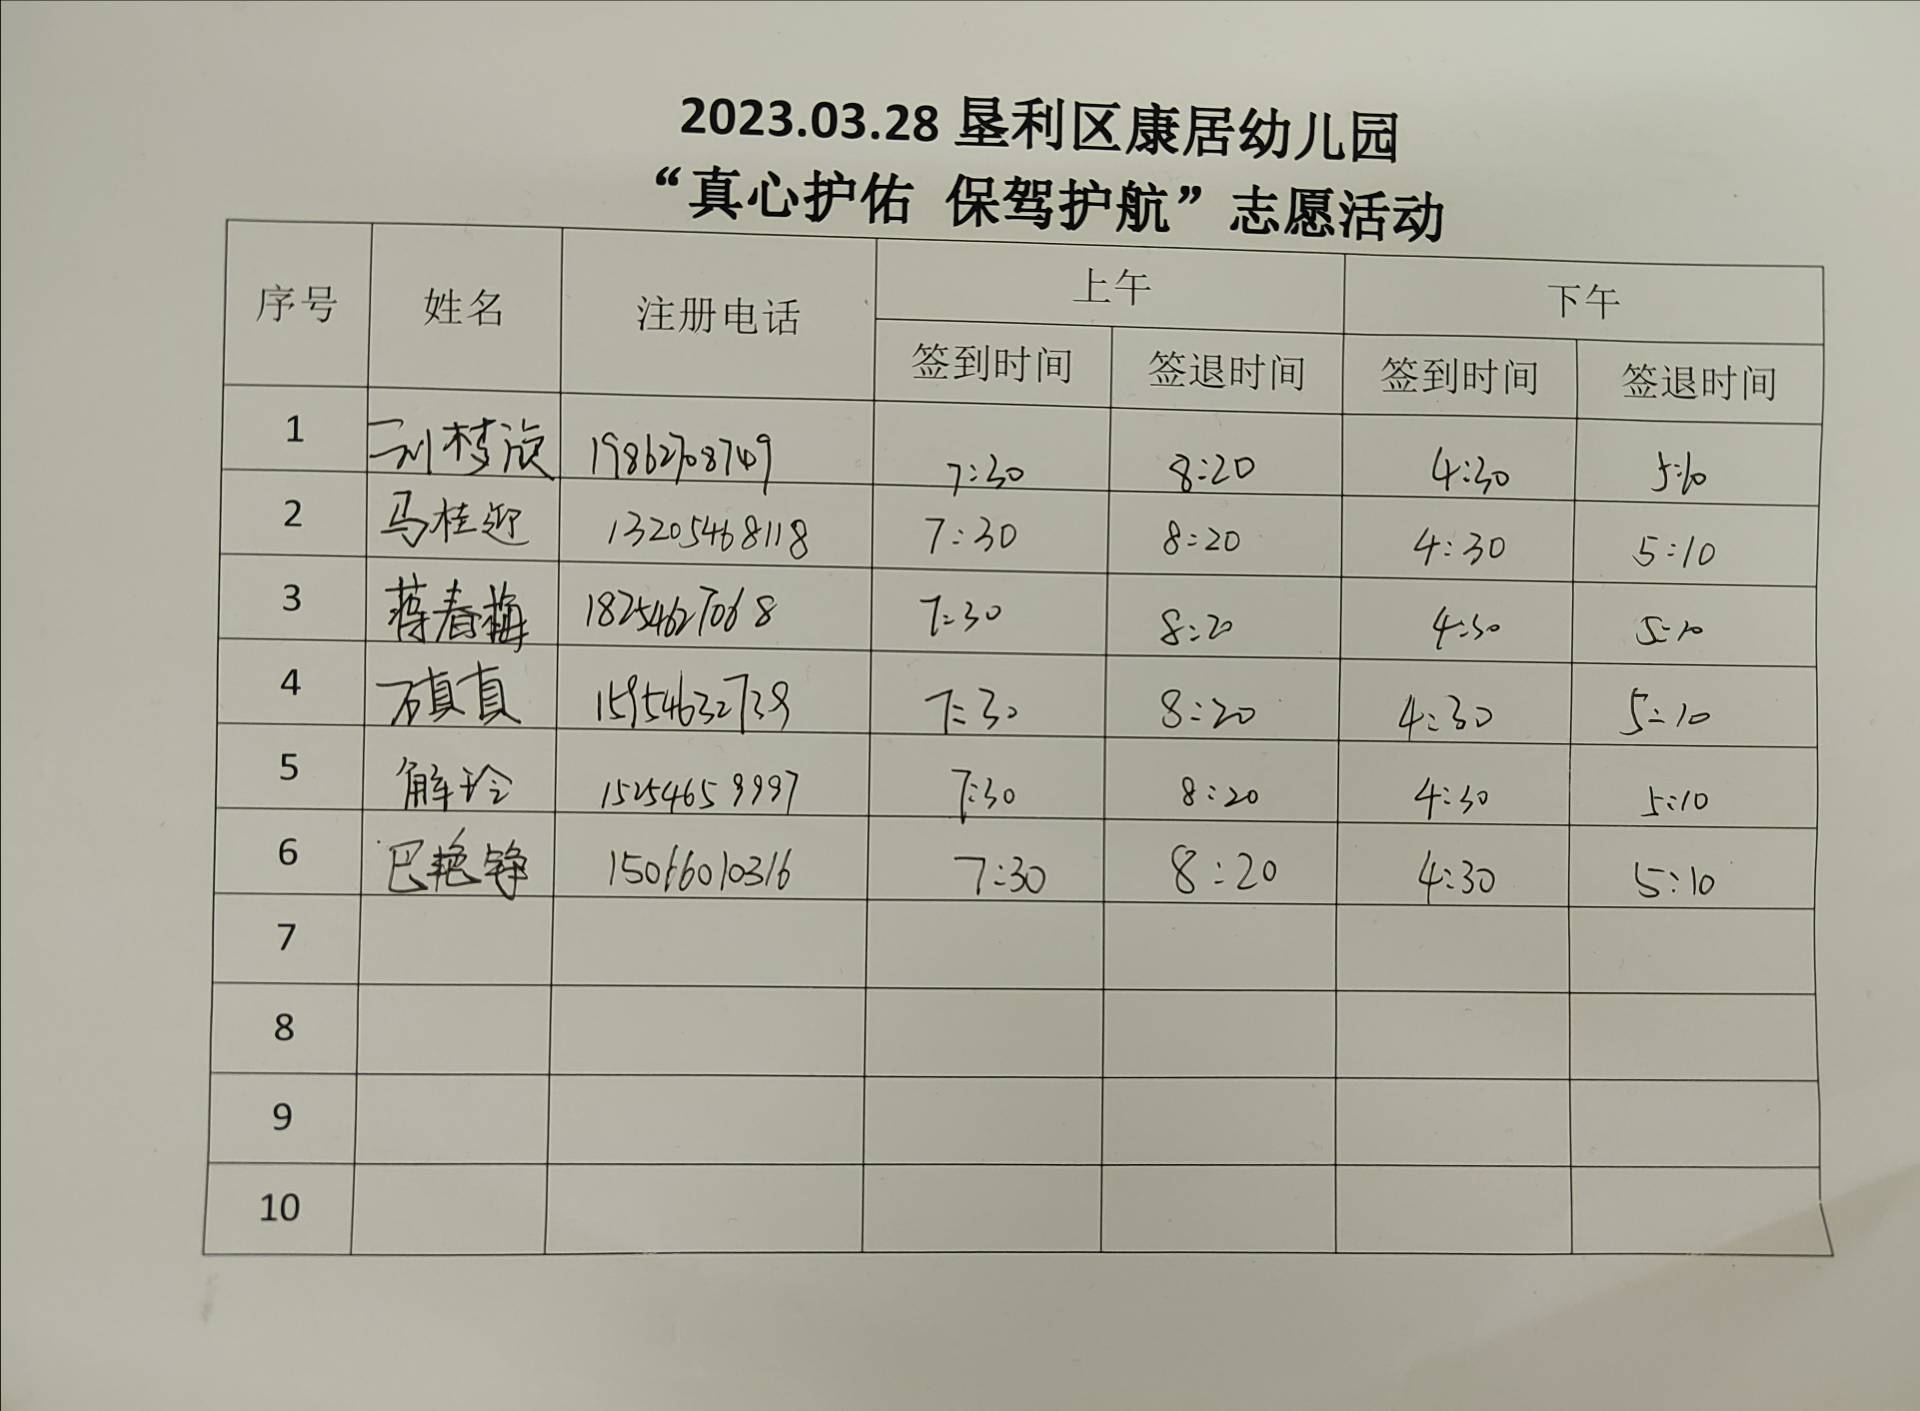 2023.03.28 垦利区康居幼儿园
“真心护佑 保驾护航”志愿活动
序号 姓名 注册电话 上午 下午
签到时间 签退时间 签到时间 签退时间
1 刘梦 7:30 8:20 4:30 5:10
2 马桂迎 13205468118 7:30 8:20 4:30 5:10
3 蒋春梅 18254627068 7:30 8:20 4:30 5:10
4 石真真 15954632739 7:30 8:20 4:30 5:10
5 解玲 15254659997 7:30 8:20 4:30 5:10
6 巴艳铮 15066010316 7:30 8:20 4:30 5:10
7
8
9
10